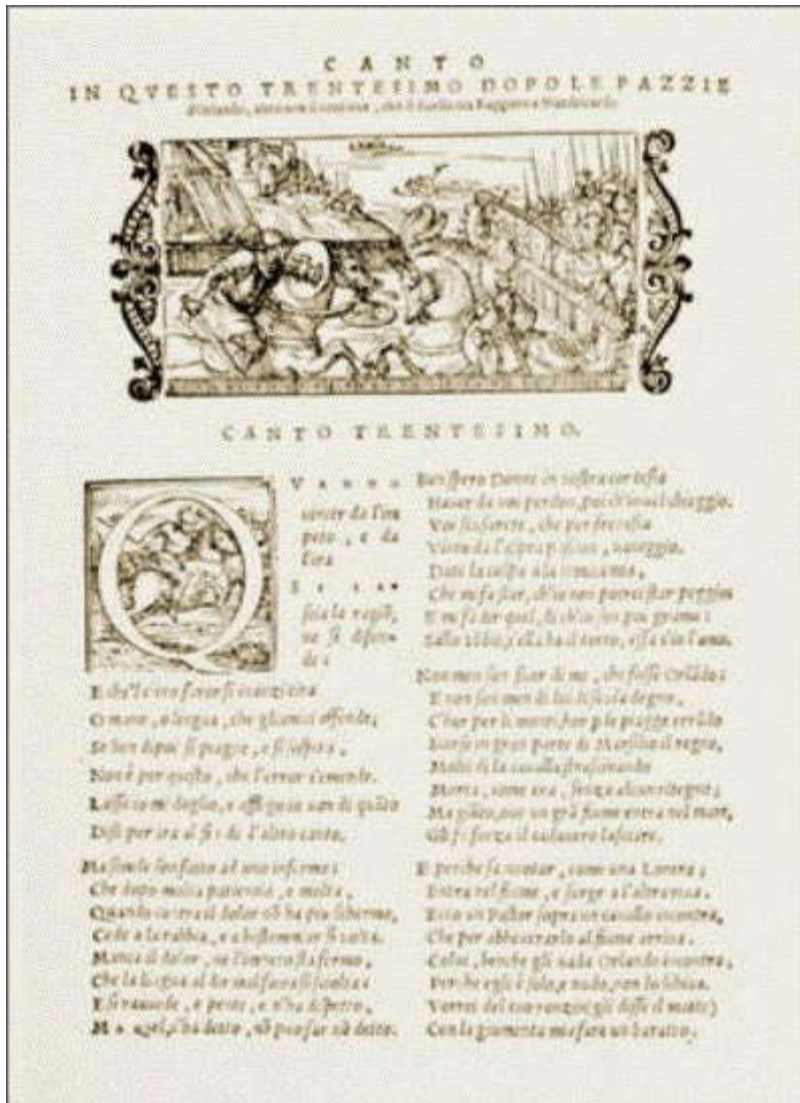 CANTO
IN QVESTO TRENTESIMO DOPO LE PAZZIE
CANTO TRENTESIMO.
QVANDO
vincer da l'im
peto, e da
l'ira
Si las-
scia la ragiõ,
ne si difen-
de;
O mano, o lingua, che gliamici offende;
Se ben dipoi si piagne, e si sospira,
Non è per questo, che l'error s'emende.
Lasso io mi doglio, e affliggo in uan di quãto
Dissi per ira al fin de l'altro canto.
Ma simile son fatto ad uno infermo;
Che dopo molta patientia, e molta,
Quando contra il dolor nõ ha piu schermo,
Cede a la rabbia, e a bestemmiar si uolta.
Manca il dolor, ne l'impeto sta fermo,
Che la lingua al dir mal facea si sciolta;
E si rauuede, e pente, e n'ha dispetto,
Ma quel, c'ha detto, nõ puo far nõ detto.
Ben spero Donne in uostra cortesia
Hauer da uoi perdon, poi ch'io uel chieggio.
Voi scusarete, che per frenesia
Vinto da l'aspra passion, uaneggio.
Date la colpa a la nimica mia,
Che mi fa star, ch'io non potrei star peggio;
E mi fa dir quel, di ch'io son poi gramo;
Sallo Iddio, s'ella ha il torto, essa s'io l'amo.
Non men son fuor di me, che fosse Orlãdo;
E non son men di lui di scusa degno,
C'hor per li monti, hor p le piagge errãdo
Scorse in gran parte di Marsilio il regno,
Molti dì la caualla strascinando
Morta, come era, senza alcun ritegno;
Ma giũto, oue un grã fiume entra nel mar,
Gli fu forza il cadauero lasciare.
E perche sa nuotar, come una Lontra;
Entra nel fiume, e surge a l'altra riua.
Ecco un Pastor sopra un cauallo incontra,
Che per abbeuerarlo al fiume arriua.
Colui, benche gli uada Orlando incontra,
Perche egli è solo, e nudo, non lo schiua.
Vorrei del tuo ronzin (gli disse il matto)
Con la giumenta mia fare un baratto.